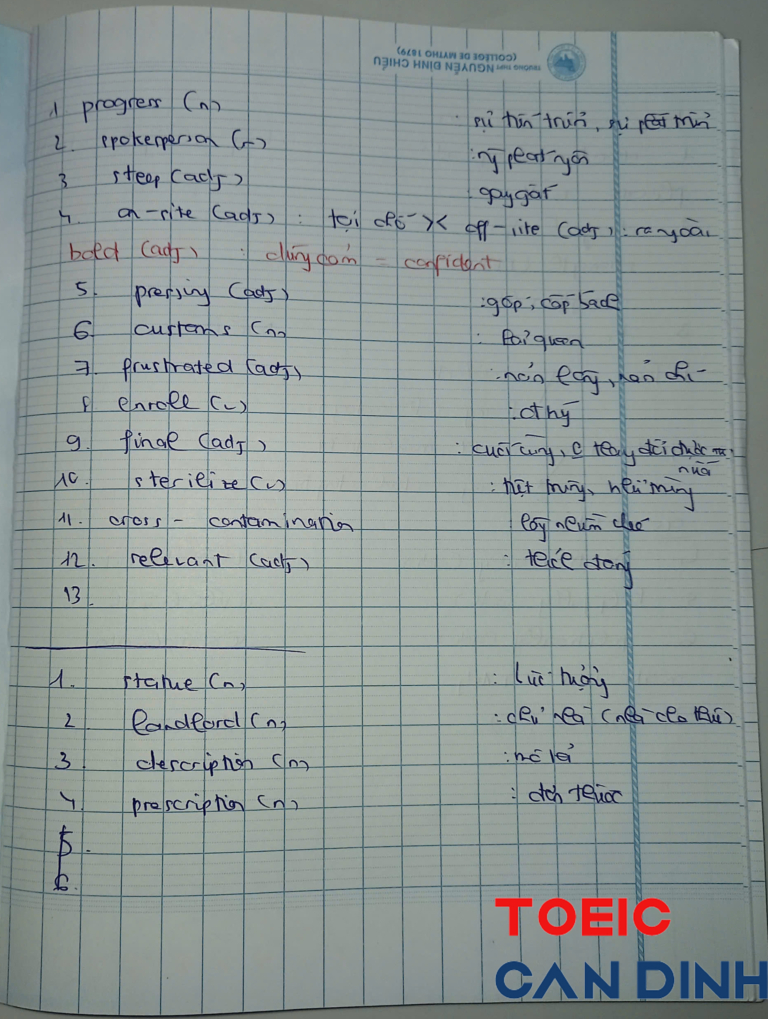 TRƯỜNG THPT NGUYỄN ĐÌNH CHIỂU
(COLLÈGE DE MYTHO 1879)
1 progress (n) : sự tiến triển, sự
2. spokeperson (n)
3 steep (adj) : gay gắt
4. on-site (adj) : tại chỗ >< off-site (adj) : ra ngoài
bold (adj) : dũng cảm = confident
5. pressing (adj) : gấp, cấp bách
6 customs (n) : hải quan
7. frustrated (adj) : nản lòng, nản chí
8 enroll (v) : đ ký
9. final (adj) : cuối cùng, thay đổi được nữa
10. sterilize (v) : tiệt trùng, khử trùng
11. cross - contamination lây nhiễm chéo
12. relevant (adj) : thích đáng
13
1. statue (n) : bức tượng
2 landlord (n) : chủ nhà (nhà cho thuê)
3 description (n) : mô tả
4 prescription (n) : đơn thuốc
5.
6.
TOEIC
CAN DINH